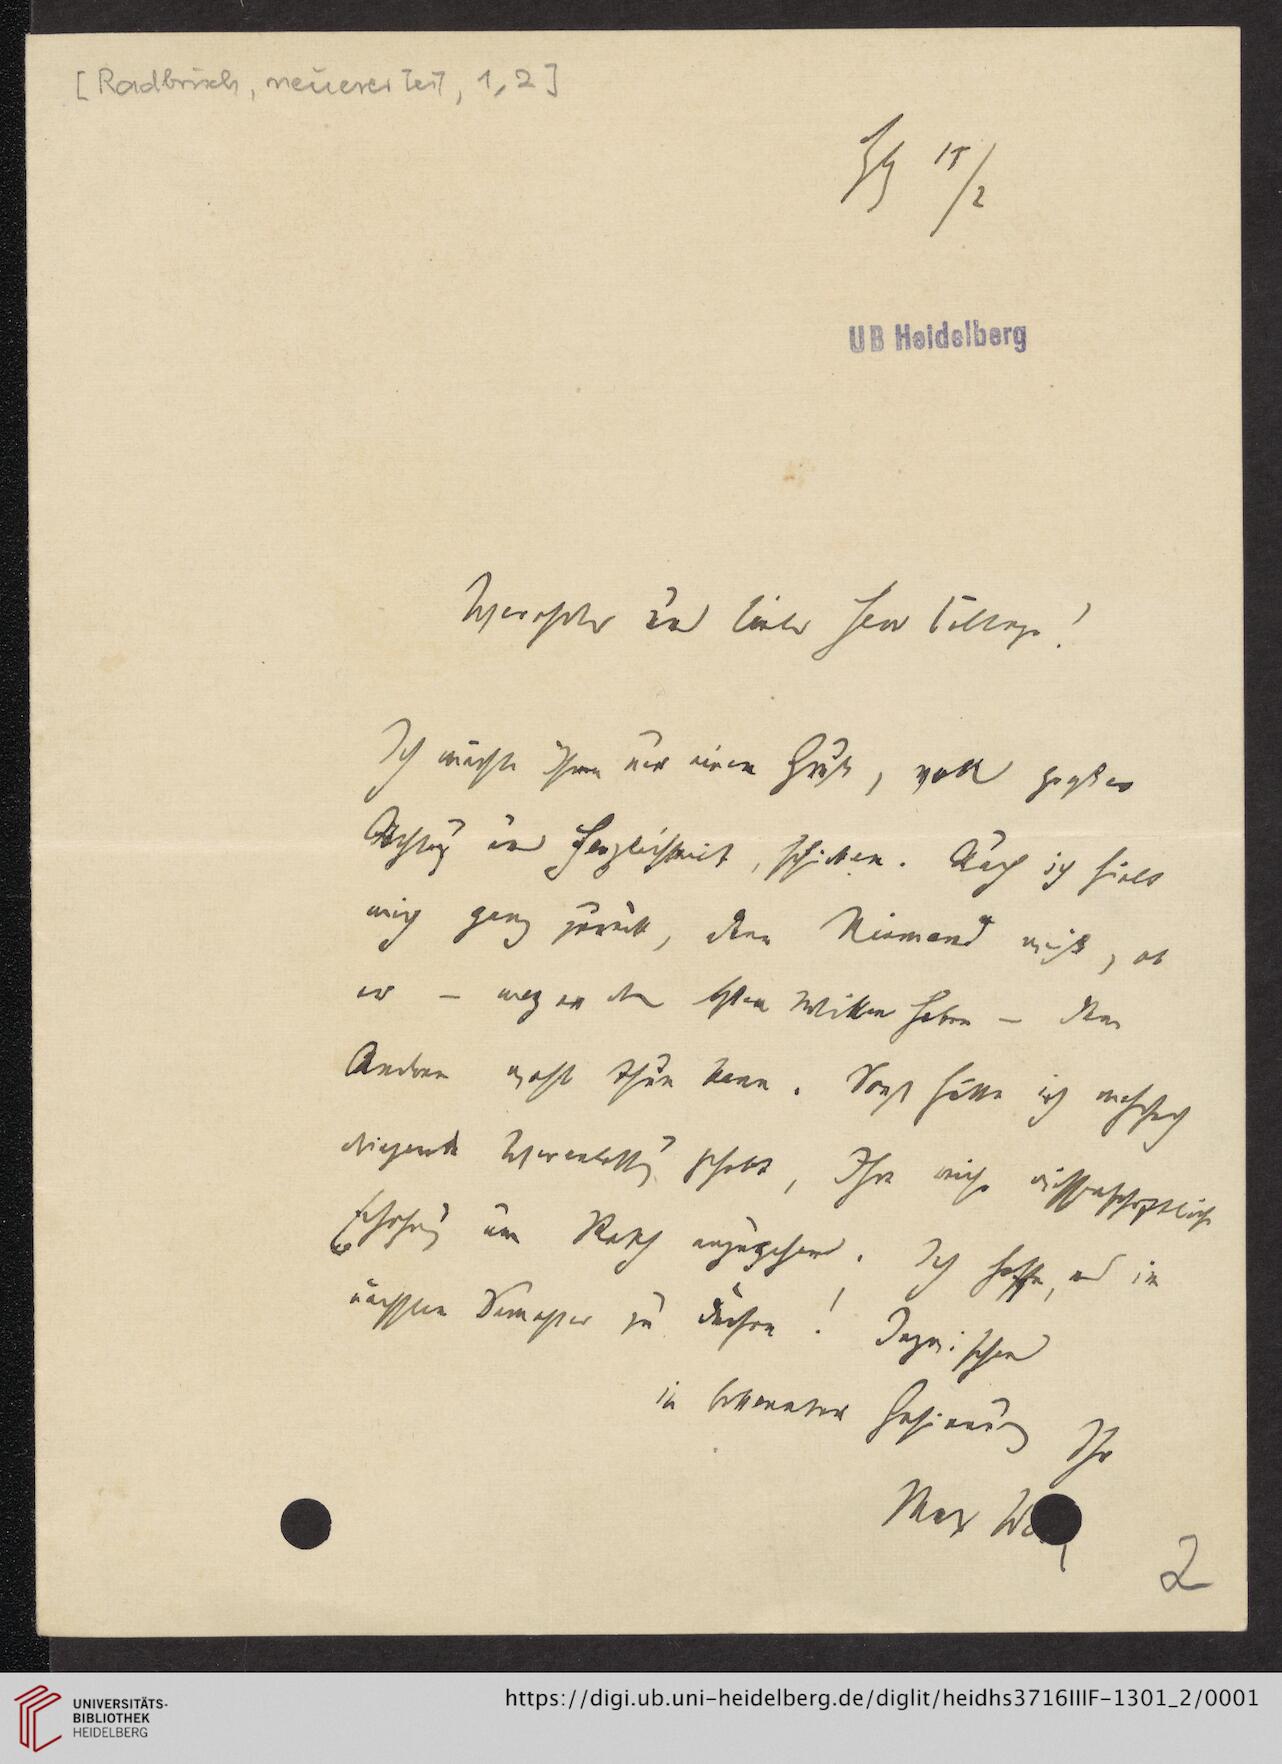 [Radbruch, neuerer Teil, 1,2]
Hbg 15/2
UB Heidelberg
Verehrter und lieber Herr College!
Ich möchte Ihnen nur einen Gruß, voll großer
Achtung und Herzlichkeit, schicken. Auch ich hielt
mich ganz zurück, denn Niemand weiß, ob
er – wenn den besten Willen haben – dem
Andren wohl thun kann. Sonst hätte ich mehrfach
dringende Veranlassung gehabt, Ihre wissenschaftliche
Erfahrung um Rath anzugehen. Ich hoffe, es im
nächsten Semester zu dürfen! Inzwischen
in bekannter Gesinnung Ihr
Max We
2
UNIVERSITÄTS-
BIBLIOTHEK
HEIDELBERG
https://digi.ub.uni-heidelberg.de/diglit/heidhs3716IIIF-1301_2/0001